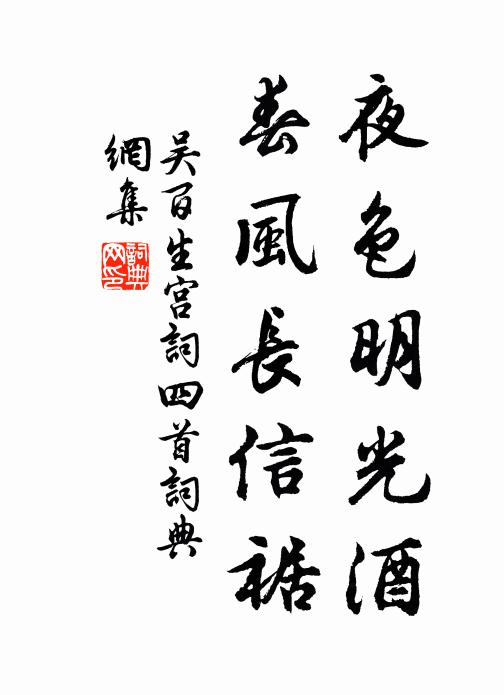 夜色明光酒
春風長信裾
吴百生宫詞四首詞典
網集
詞典网印